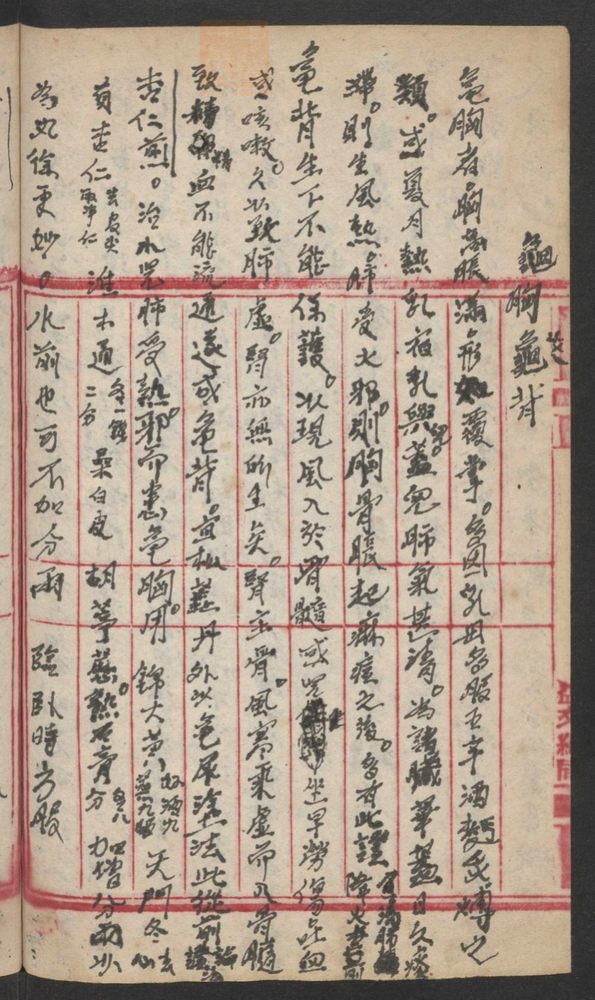 龜胸龜背
龜胸者。胸高脹滿。形如覆掌。多因乳母多服五辛酒麵炙煿之
類。或夏月熱乳。宿乳與兒。蓋兒肺氣甚清。為諸臟華蓋。日久痰
滯。則生風熱。肺受火邪。則胸骨脹起。麻痘之後。多有此證
龜背生下不能保護。以現風入於骨髓。或兒坐早勞傷
或咳嗽。久以致肺虛。腎亦無所生矣。腎主骨。風寒乘虛而入骨髓
致精血不能流通。遂成龜背。宜松蕊丹。外以龜尿塗法。此從前
杏仁煎。治小兒肺受熱邪而患龜胸。用錦大黃 天門冬去心
真杏仁去皮尖 淮木通二分 桑白皮 胡葶藶 熱石膏分
為丸徐更妙。水煎也可不加分兩 臨臥時方服